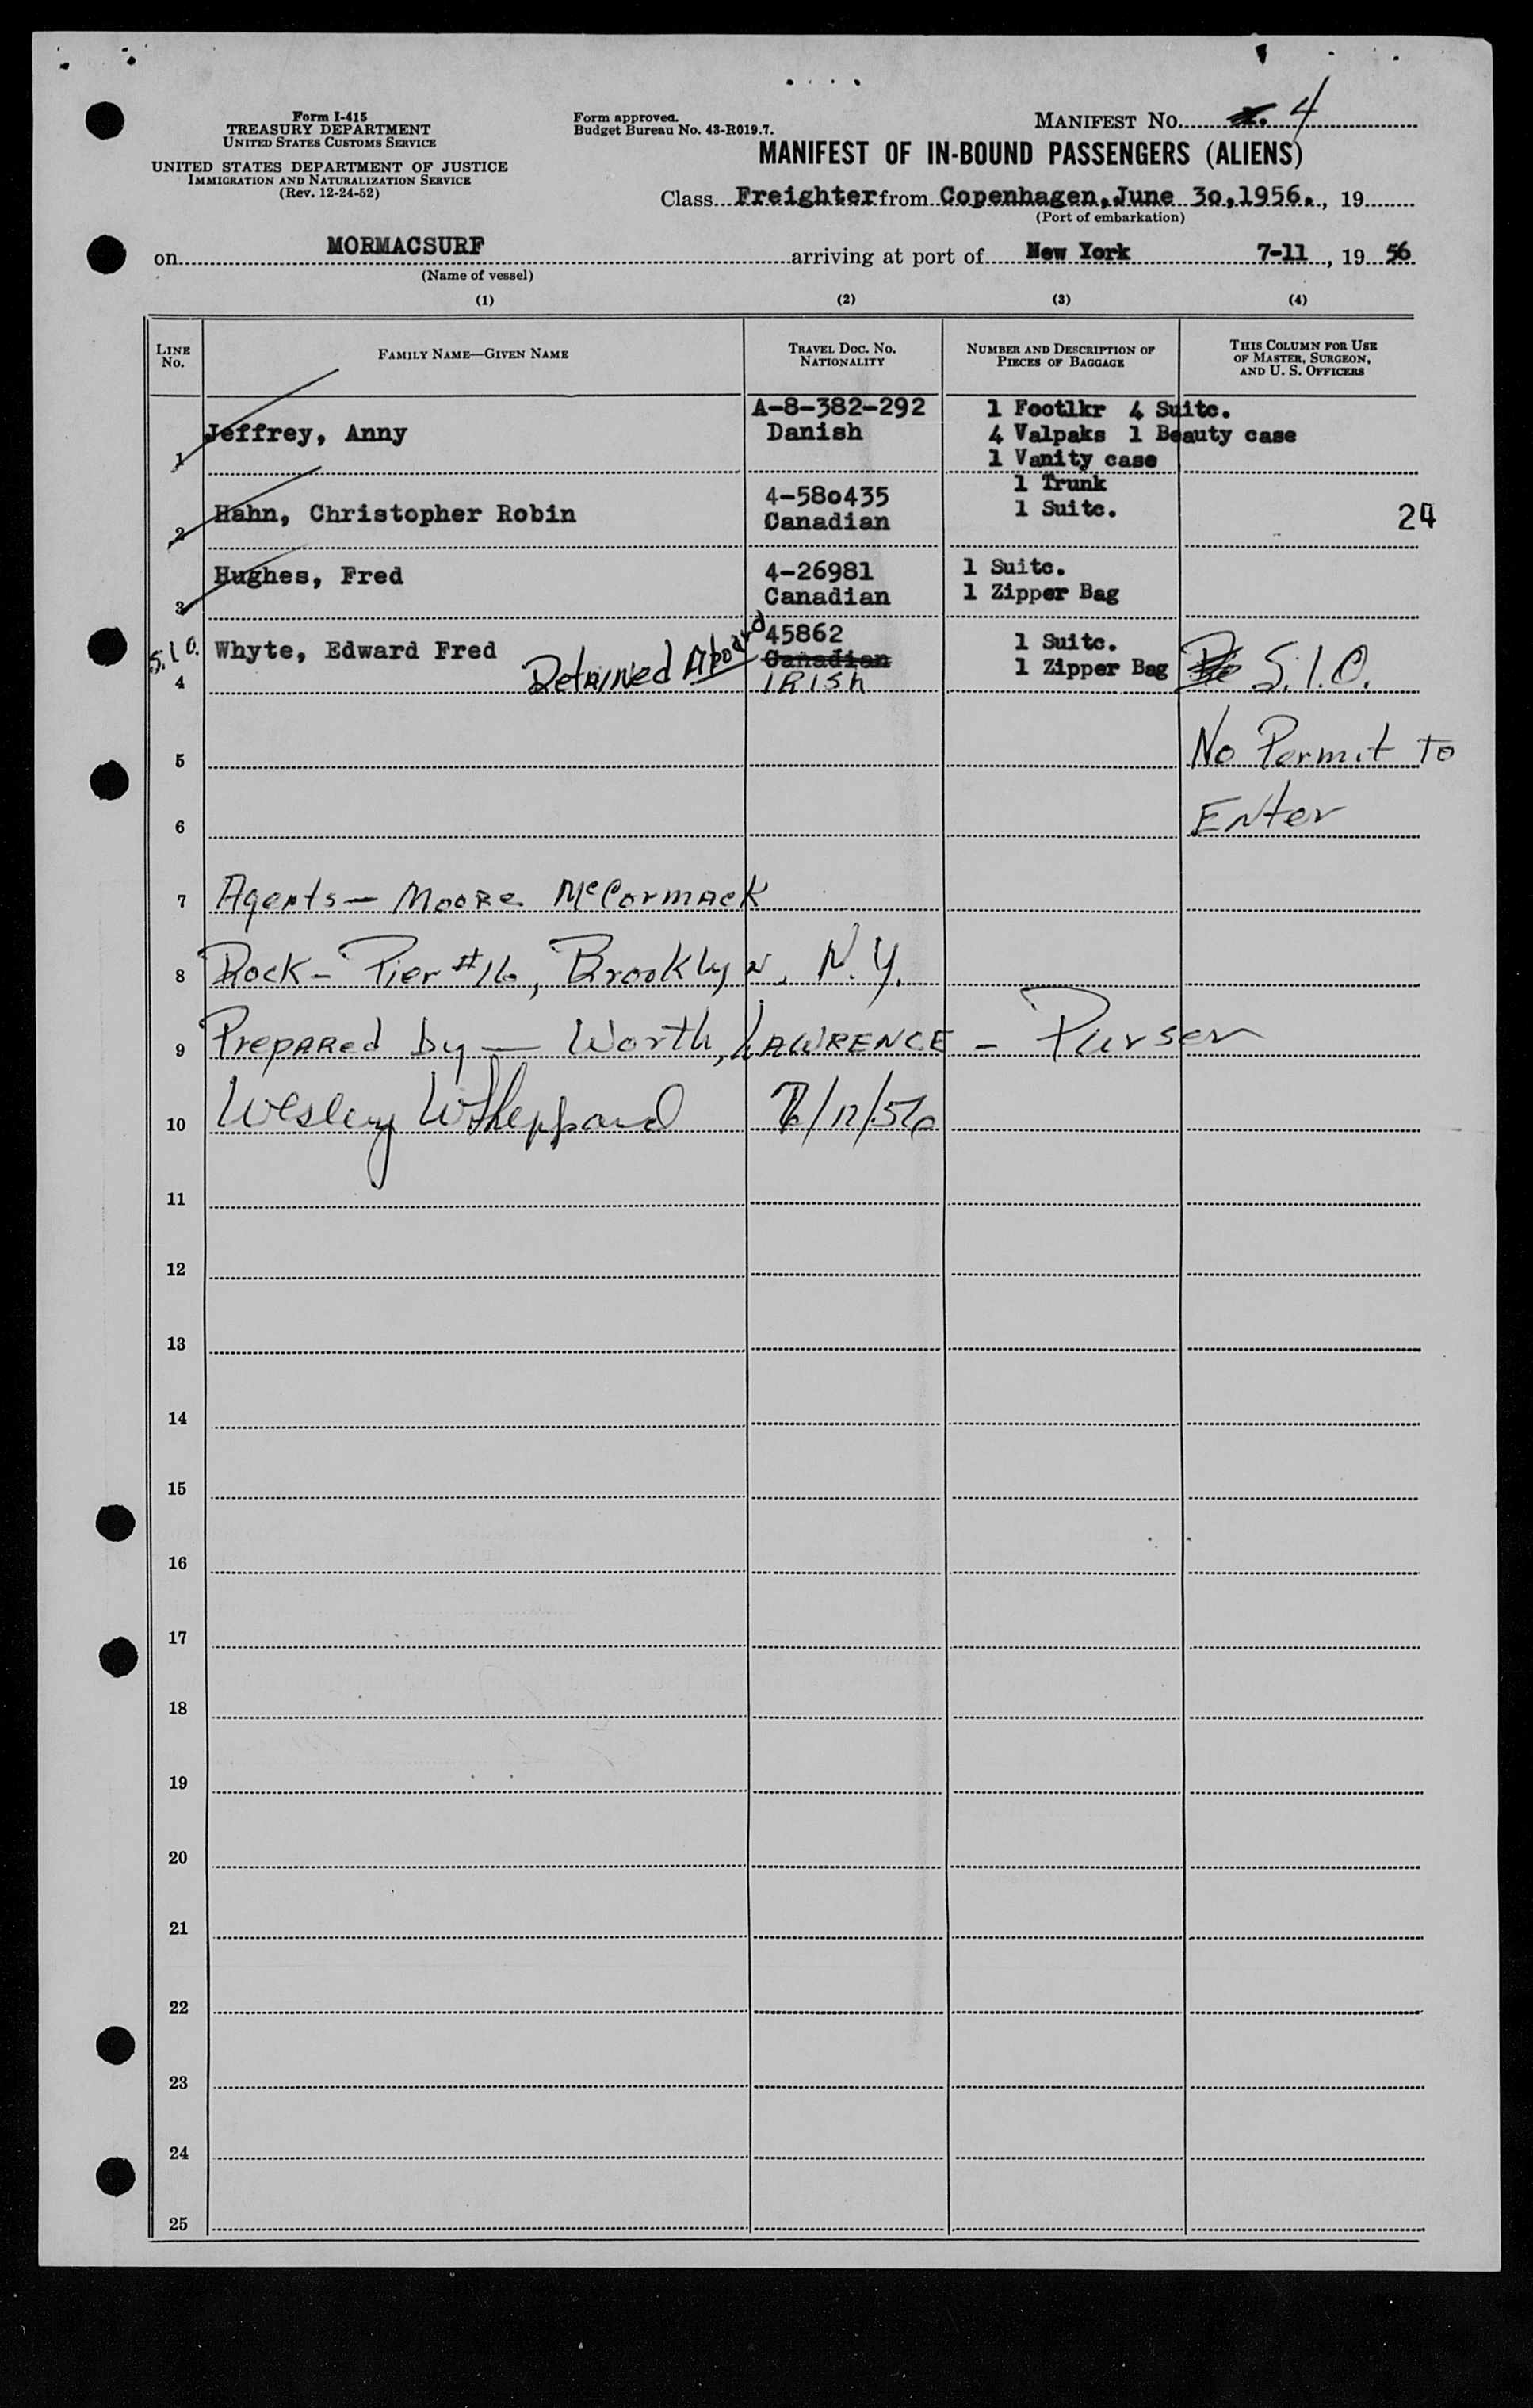 Form I-415
TREASURY DEPARTMENT
UNITED STATES CUSTOMS SERVICE
UNITED STATES DEPARTMENT OF JUSTICE
IMMIGRATION AND NATURALIZATION SERVICE
(Rev. 12-24-52)
Form approved.
Budget Bureau No. 43-R019.7.
MANIFEST No. 4
MANIFEST OF IN-BOUND PASSENGERS (ALIENS)
Class Freighter from Copenhagen, June 30, 1956., 19
(Port of embarkation)
on MORMACSURF arriving at port of New York 7-11, 19 56
(Name of vessel)
(1) (2) (3) (4)
LINE No. FAMILY NAME—GIVEN NAME TRAVEL DOC. NO. NATIONALITY NUMBER AND DESCRIPTION OF PIECES OF BAGGAGE THIS COLUMN FOR USE OF MASTER, SURGEON, AND U. S. OFFICERS
1 Jeffrey, Anny A-8-382-292 Danish 1 Footlkr 4 Suitc. 4 Valpaks 1 Beauty case 1 Vanity case
2 Hahn, Christopher Robin 4-580435 Canadian 1 Trunk 1 Suitc. 24
3 Hughes, Fred 4-26981 Canadian 1 Suitc. 1 Zipper Bag
S.I.O. 4 Whyte, Edward Fred Detained Aboard 45862 Canadian IRISh 1 Suitc. 1 Zipper Bag S.I.O.
5 No Permit To
6 Enter
7 Agents — Moore McCormack
8 Dock - Pier #16, Brooklyn, N.Y.
9 Prepared by — Worth, LAWRENCE - Purser
10 Wesley W Sheppard 7/12/56
11
12
13
14
15
16
17
18
19
20
21
22
23
24
25